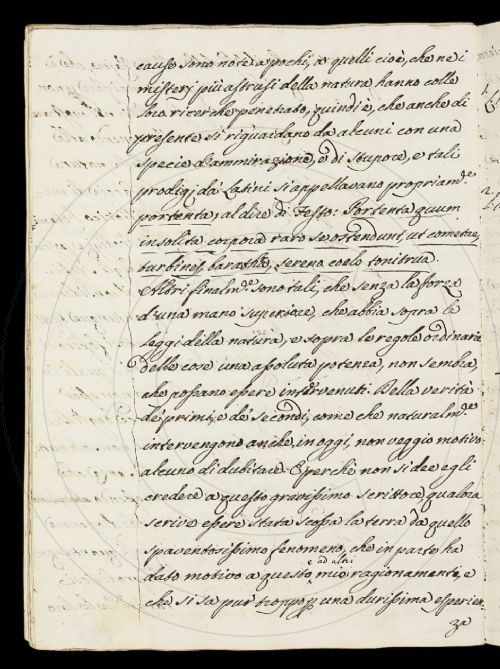 cause sono note a pochi, a quelli cioè, che ne i
misterj più astrusi della natura hanno colle
loro ricerche penetrato, quindi è, che anche di
presente si riguardano da alcuni con una
specie d'ammirazione, e di stupore, e tali
prodigj da' Latini si appellavano propriam.te
portenta; al dire di Festo: Portenta quum
insolita corpora raro se ostendunt, ut cometae,
turbines, sereno coelo tonitrua.
Altri finalm.te sono tali, che senza la forza
d'una mano superiore, che abbia sopra le
leggi della natura, e sopra le regole ordinarie
delle cose una assoluta potenza, non sembra,
che possano essere intervenuti. Della verità
de' primi, e de' secondi, come che naturalm.te
intervengono anche in oggi, non veggio motivo
alcuno di dubitare. E perchè non si dee egli
credere a questo gravissimo scrittore, qualora
scrive essere stata scossa la terra da quello
spaventosissimo fenomeno, che in parte ha
dato motivo a questo mio ragionamento, e
e ad altri
che si sa pur troppo p una durissima esperien-
za